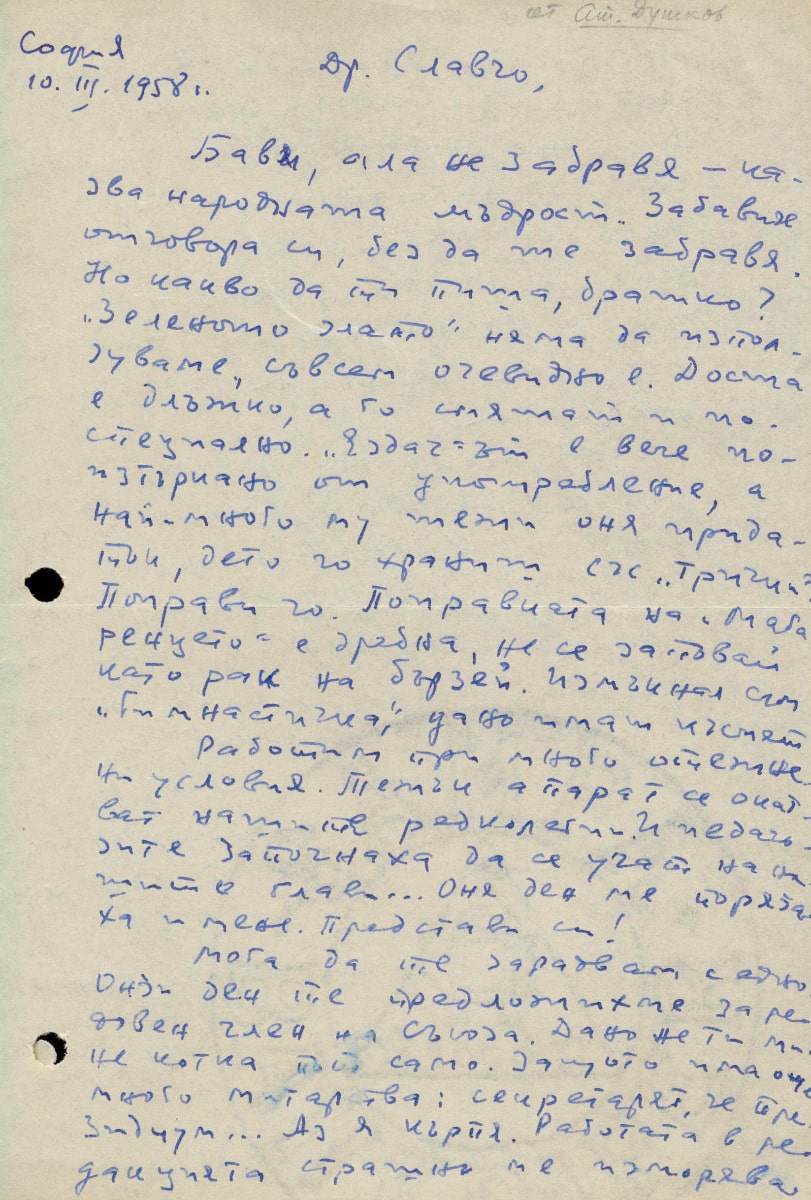 от Ат. Душков
София
10. III. 1958 г.
Др. Славчо,
Бави, ала не забравя – ка-
зва народната мъдрост. Забавих
отговора си, без да те забравя.
Но какво да ти пиша, братко?
„Зеленото злато“ няма да изпол-
зуваме, съвсем очевидно е. Доста
е длъжко, а го смятат и по-
специално. „Ездач“-ът е вече по-
изтъркано от употребление, а
най-много му тежи оня прида-
тък, дето го храниш със „Трички“.
Поправи го. Поправката на „Мага
ренцето“ е дребна, не се запъвай
като рак на бързей. Измъкнал съм
„Гимнастичка“, дано имаш късмет.
Работим при много отежне-
ни условия. Тежък апарат се оказ-
ват нашите редколегии. И педаго-
зите започнаха да се учат на на-
шите глави... Оня ден ме поряза-
ха и мене. Представи си!
Мога да те зарадвам с едно
Онзи ден те предложихме за ре-
довен член на Съюза. Дано не ти ми-
не котка път само. Защото има още
много митарства: секретарят, че пре-
зидиум... Аз я кърпя. Работата в ре-
дакцията страшно ме изморява.